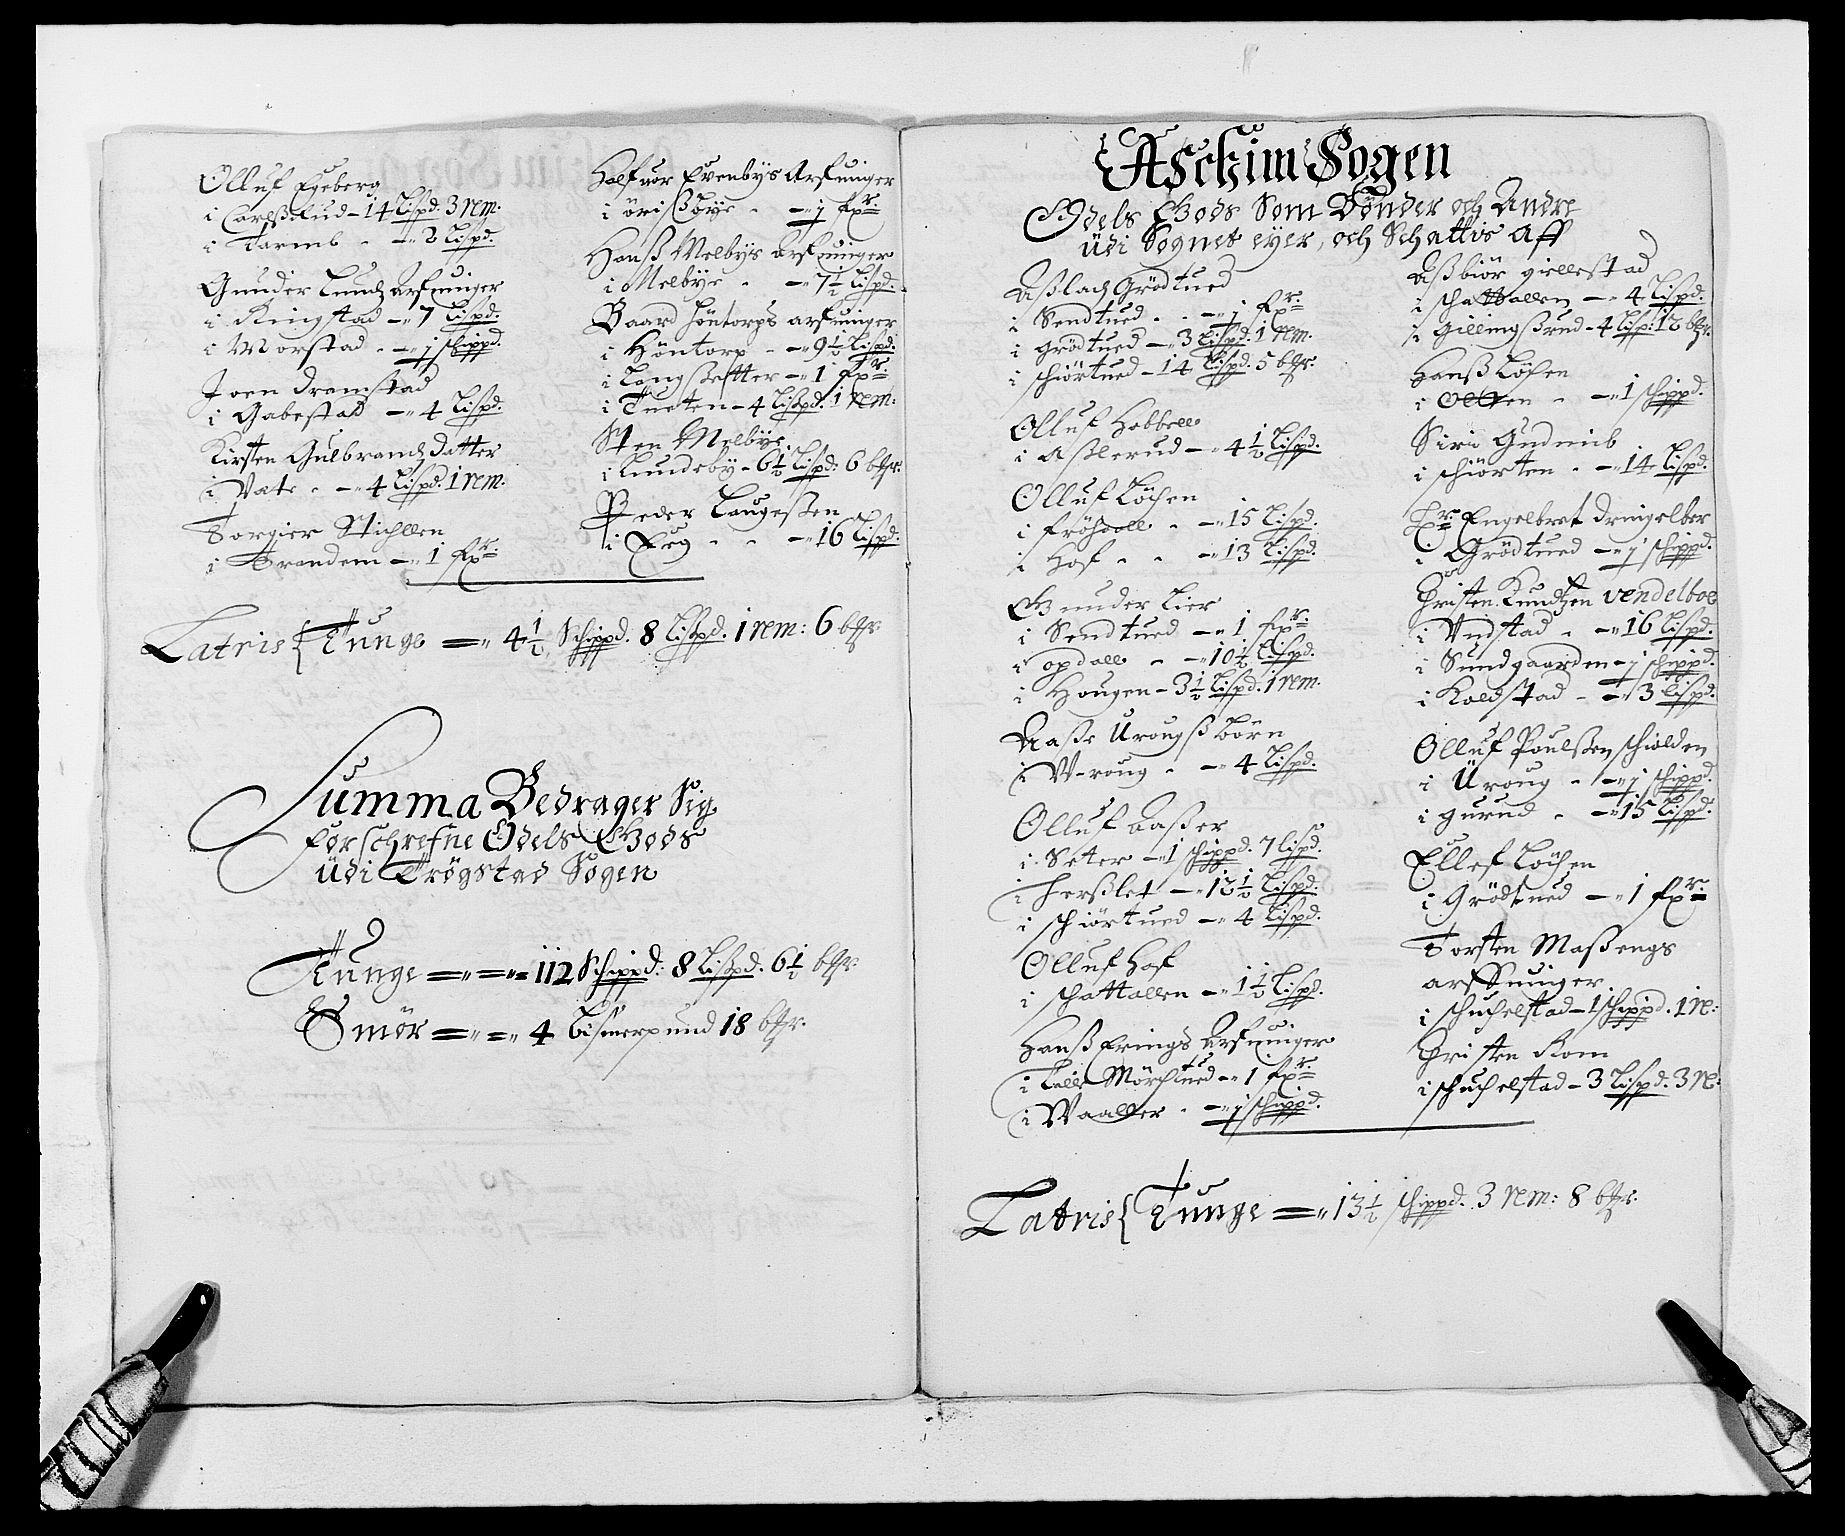 Olluf Egeberg
i Carlßrud - 14 Lispd. 3 rem.
i Tarmb - 2 Lispd.
Gunder Lunds Arfuinger
i Ringstad - 7 Lispd.
i Morstad - j schippd.
Joen Dramstad
i Gabestad - 4 Lispd.
Kirsten Gulbrandz Datter
i Vate - 4 Lispd. 1 rem.
Torgier Stichllen
i Trandem - 1 fxr:
Halfuor Evenbys Arfuinger
i örißöye - j fxr:
Hanß Melbys arfuinger
i Melbye - 7½ Lispd.
Baard Höntorps arfuinger
i Höntorp - 9½ Lispd.
i Langsetter - 1 fxr:
i Tueten - 4 Lißpd. 1 rem:
Sten Melbye
i Lundeby - 6½ Lispd: 6 bßr:
Peder Laugessen
i Eeg - 16 Lißpd.
Latris { Tunge = 4½ Schippd. 8 Lißpd. 1 rem: 6 bßr
Summa Bedrager Sig
forschrefne Odels Gods
üdi Trögstad Sogen
Tunge = = 112 Schippd: 8 Lißpd. 6½ bßr:
Smör = = 4 bismerpund 18 bßr.
Aschim Sogen
Odels Gods Som Bönder och Andre
üdi Sognet eyer, och Schattis Aff
Aßlach Grödtued
i Sendtued - j fxr:
i Grödtued - 3 Lispd. 1 rem.
i schiörtued - 14 Lispd. 5 bßr.
Olluf Hobbell
i Aßlerud - 4½ Lispd.
Olluf Löchen
i fröshoell - 15 Lispd.
i Hof - 13 Lispd.
Gunder Lier
i Sendtued - 1 fxr:
i opdall - 10½ Lispd.
i Hougen - 3½ Lispd. 1 rem.
Aaße Urougß börn
i Wroug - 4 Lispd.
Olluf Aaßer
i Seter - 1 schippd. 7 lispd.
i herßlet - 12½ Lispd.
i schiörtued - 4 Lispd.
Olluf Hof
i schattallen - 1½ Lispd.
Hanß Erings Arfuinger
i Lille Mörchtued - 1 fxr:
i Waaller - j schippd.
Aßbiör giellestad
i schattallen - 4 Lispd.
i Gillingßrud - 4 Lisp: 12 bßr.
Hanß Löchen
i Oltten - 1 schippd.
Siri Gudmib
i schiörten - 14 Lispd.
Hr: Engelbret Dringelber
i Grödtued - j schippd.
Christen Knudtzen Vendelboe
i Vndstad - 16 Lispd.
i Sundgaarden - j schippd.
i Koldstad - 3 Lispd.
Olluf Poulßen schiolden
i Uroug - j schippd.
i gurud - 15 Lispd.
Ellef Löchen
i Grödtued - 1 fxr:
Torsten Maßengs
arffuinger
i schuchelstad - 1 schippd. 1 re:
Christen Rom
i schuchelstad - 3 Lispd. 3 re:
Latris { Tunge = 13½ schippd. 3 rem: 8 bßr.